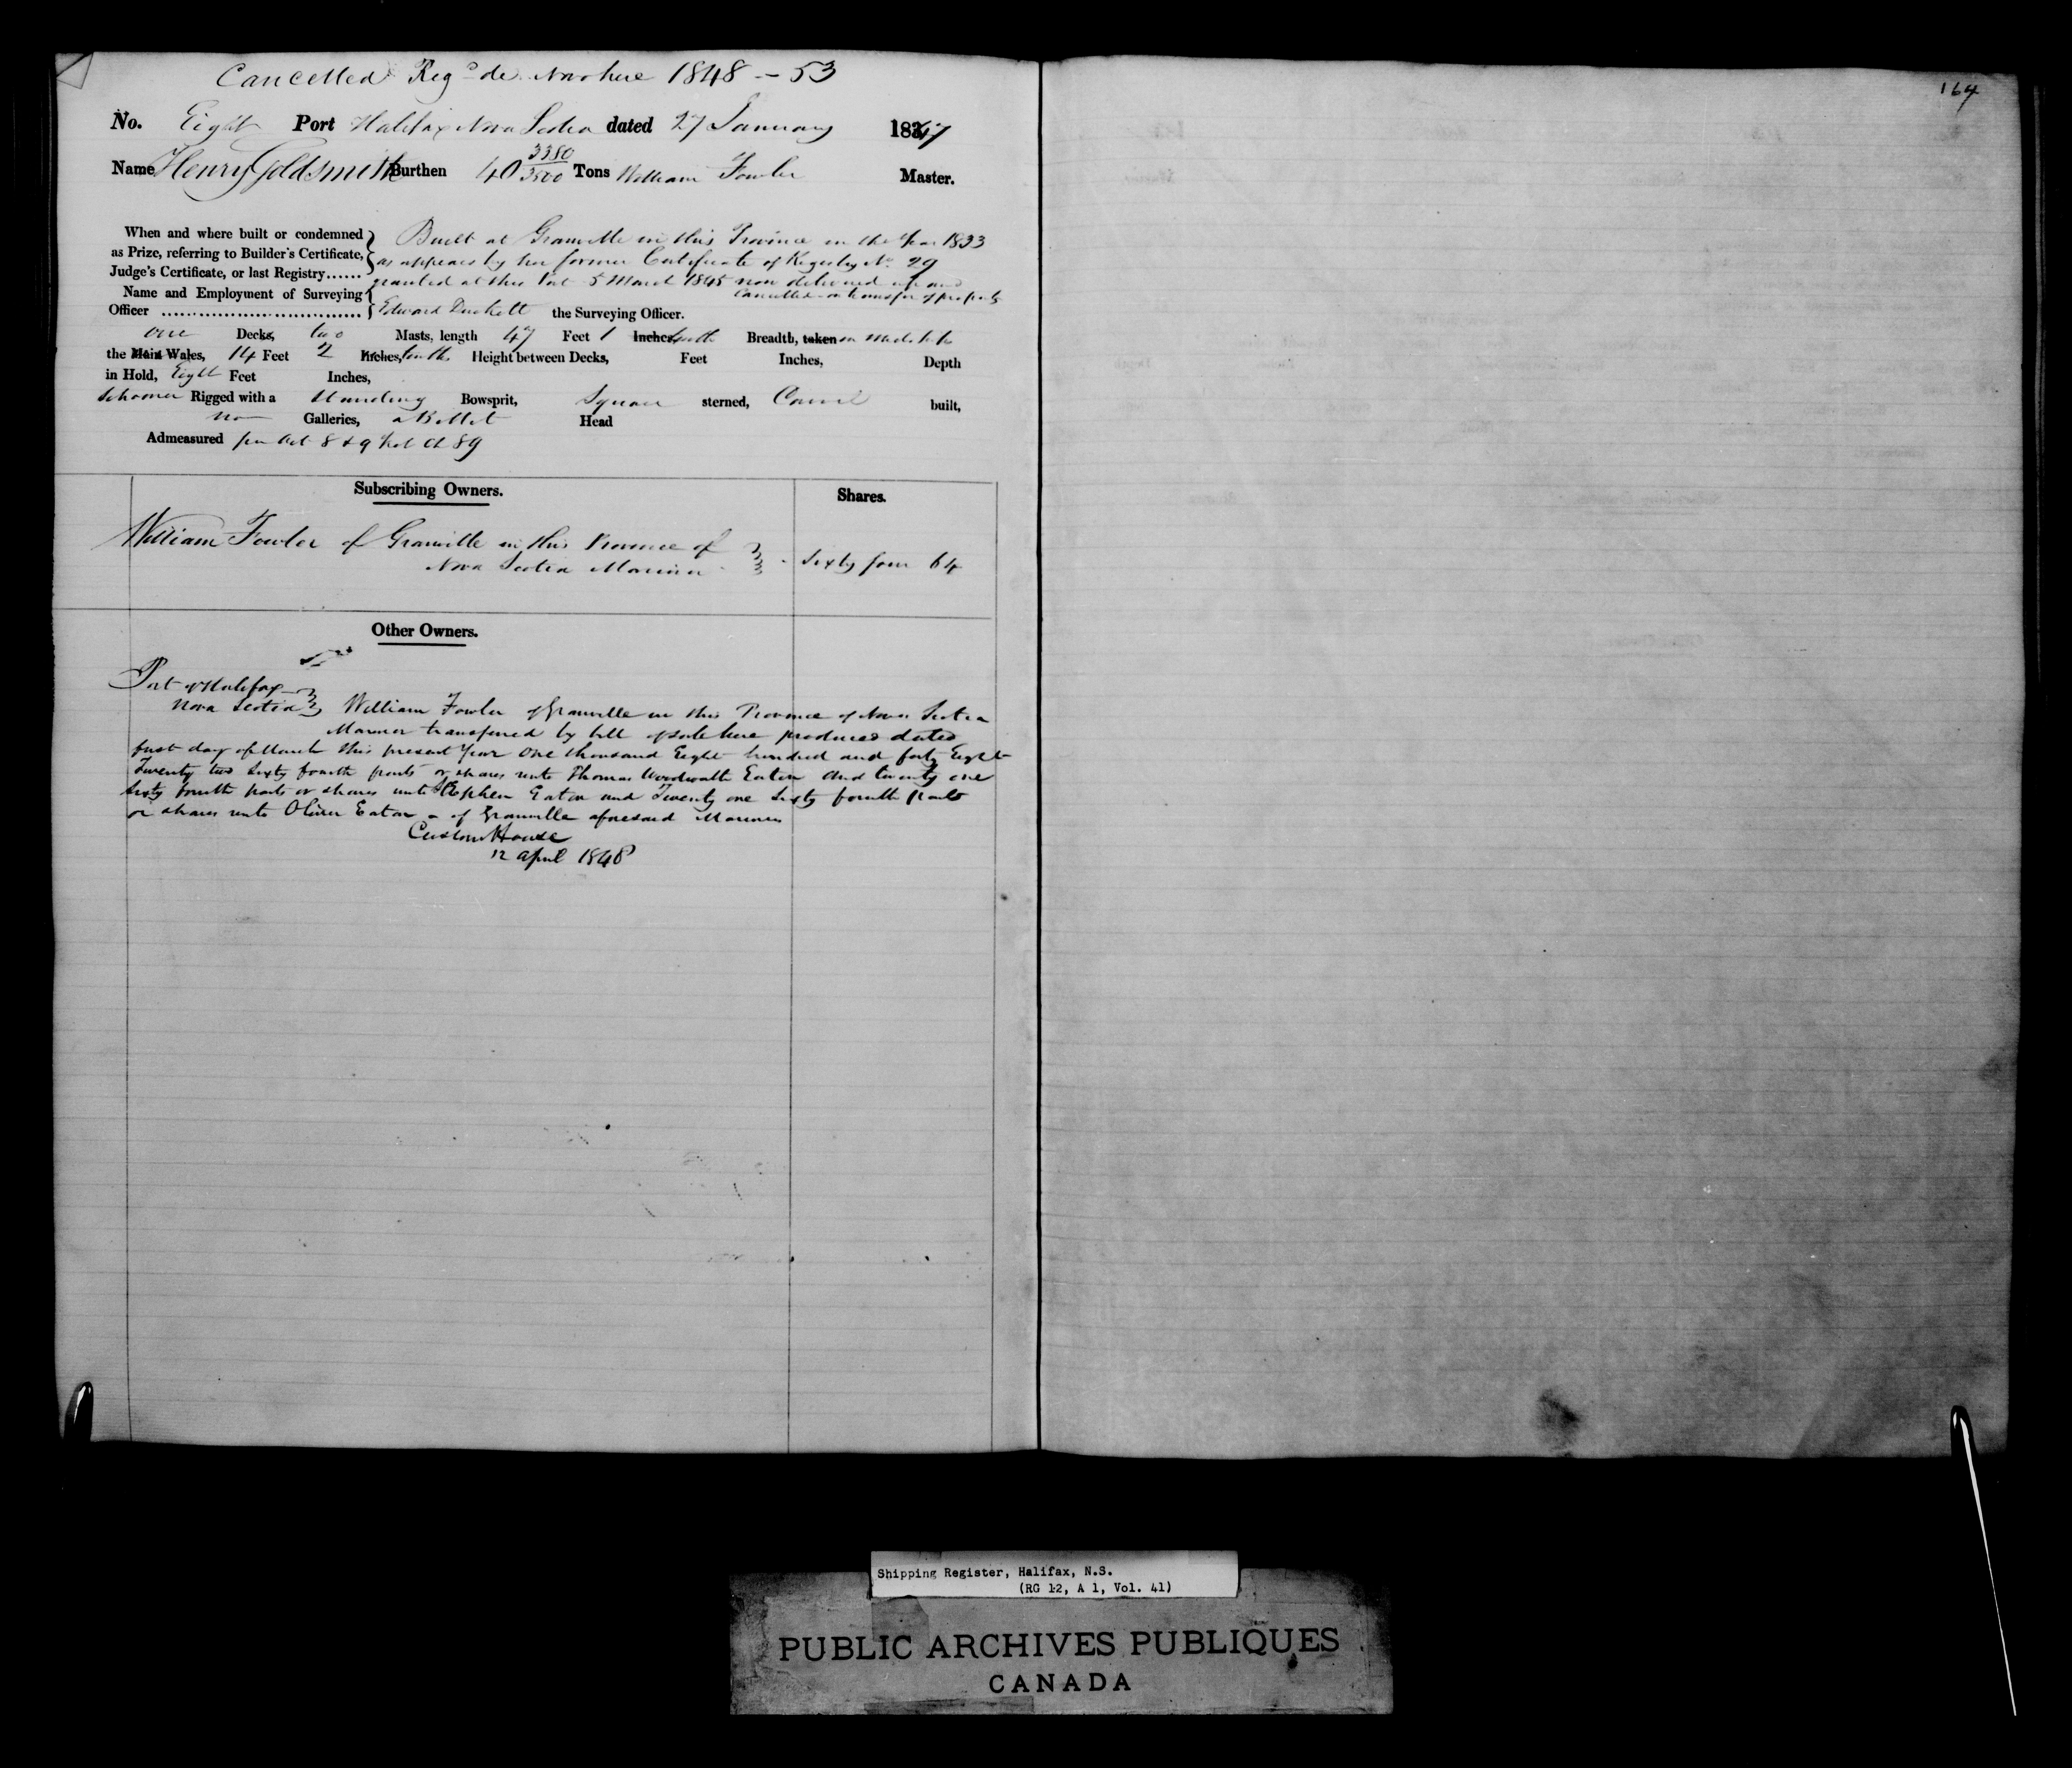 Cancelled Reg^d de Novo here 1848 - 53
164
No. Eight Port Halifax Nova Scotia dated 27 January 1847
Name Henry Goldsmith Burthen 40 3380/3500 Tons William Fowler Master.
When and where built or condemned as Prize, referring to Builder's Certificate, Judge's Certificate, or last Registry......
Built at Granville in this Province in the Year 1833
as appears by her former Certificate of Registry No. 29
granted at this Port 5 March 1845 now delivered up and
Cancelled on transfer of property
Name and Employment of Surveying
Officer .................................. Edward Duckett the Surveying Officer.
One Decks, two Masts, length 47 Feet 1 Inches, tenth Breadth, taken in midships
the Main Wales, 14 Feet 2 Inches, tenths Height between Decks, Feet Inches, Depth
in Hold, Eight Feet Inches,
Schooner Rigged with a Standing Bowsprit, Square sterned, Carvel built,
no Galleries, a Billet Head
Admeasured per Act 8 & 9 Vict Ch 89
Subscribing Owners. Shares.
William Fowler of Granville in this Province of
Nova Scotia Mariner Sixty four 64
Other Owners.
Port of Halifax
Nova Scotia William Fowler of Granville in this Province of Nova Scotia
Mariner transferred by bill of sale here produced dated
first day of March this present Year One thousand Eight hundred and forty Eight
Twenty two Sixty fourth parts or shares unto Thomas Woodwalth Eaton and twenty one
Sixty fourth parts or shares unto Stephen Eaton and Twenty one Sixty fourth parts
or shares unto Oliver Eaton - of Granville aforesaid Mariners
Custom House
12 April 1848
Shipping Register, Halifax, N.S.
(RG 12, A 1, Vol. 41)
PUBLIC ARCHIVES PUBLIQUES
CANADA